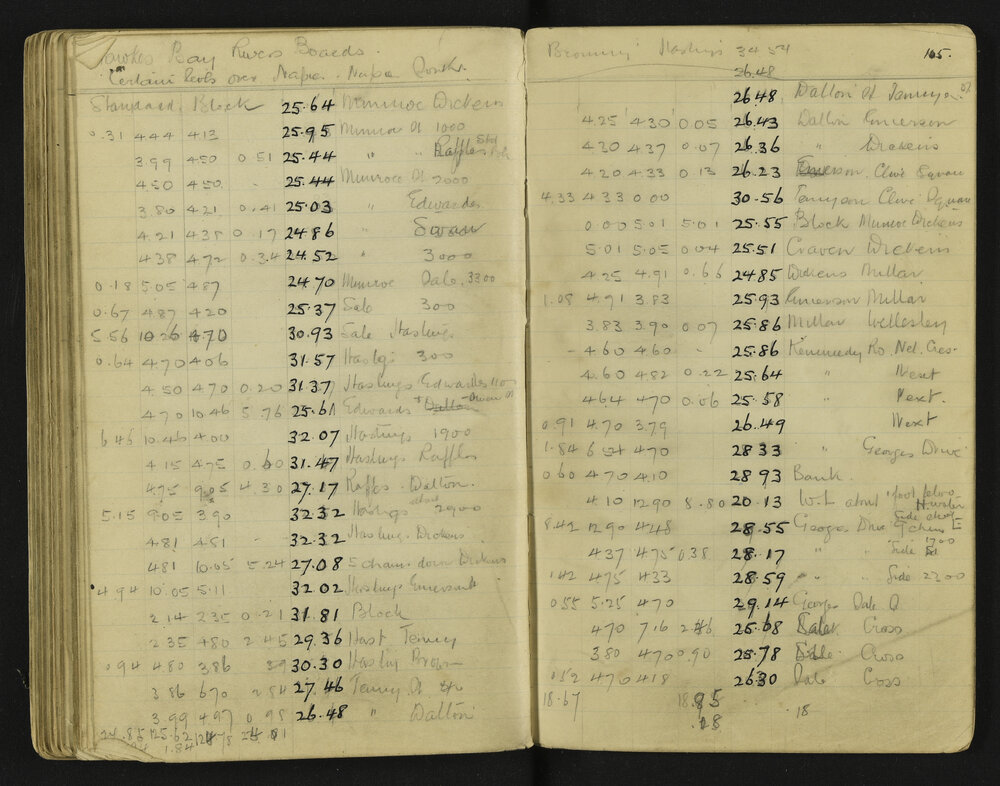 Hawkes Bay Rivers Boards.
Certain levels over Napier. Napier South.
Standard Block 25.64 Munroe Dickens
0.31 4.44 4.13 25.95 Munroe St 1000
3.99 4.50 0.51 25.44 " " Raffles
4.50 4.50 - 25.44 Munroe St 2000
3.80 4.21 0.41 25.03 " Edwardes
4.21 4.38 0.17 24.86 " Swan
4.38 4.72 0.34 24.52 " 3000
0.18 5.05 4.87 24.70 Munroe Sale 3300
0.67 4.87 4.20 25.37 Sale 300
5.56 10.26 4.70 30.93 Sale Hastings
0.64 4.70 4.06 31.57 Hastgs 300
4.50 4.70 0.20 31.37 Hastings Edwardes
4.70 10.46 5.76 25.61 Edwards Dalton
6.46 10.46 4.00 32.07 Hastings 1900
4.15 4.75 0.60 31.47 Hastings Raffles
4.75 9.05 4.30 27.17 Raffles Dalton
5.15 9.05 3.90 32.32 Hastings about 2900
4.81 4.81 - 32.32 Hastings Dickens
4.81 10.05 5.24 27.08 5 chains down Dickens
4.94 10.05 5.11 32.02 Hastings Emerson
2.14 2.35 0.21 31.81 Block
2.35 4.80 2.45 29.36 Hast Tenny
0.94 4.80 3.86 30.30 Hasting Brown
3.86 6.70 2.84 27.46 Tenny St
3.99 4.97 0.98 26.48 " Dalton
Browning Hastings 34 54
165.
26.48
26.48 Dalton St Tennyson St
4.25 4.30 0.05 26.43 Dalton Emerson
4.30 4.37 0.07 26.36 " Dickens
4.20 4.33 0.13 26.23 Emerson, Clive Square
4.33 4.33 0.00 30.56 Tennyson Clive Square
0.00 5.01 5.01 25.55 Block Munroe Dickens
5.01 5.05 0.04 25.51 Craven Dickens
4.25 4.91 0.66 24.85 Dickens Millar
1.08 4.91 3.83 25.93 Emerson Millar
3.83 3.90 0.07 25.86 Millar Wellesley
- 4.60 4.60 - 25.86 Kennedy Ro. Nel. Cres.
4.60 4.82 0.22 25.64 " Next
4.64 4.70 0.06 25.58 " Next.
0.91 4.70 3.79 26.49 Next
1.84 6.54 4.70 28.33 " Georges Drive
0.60 4.70 4.10 28.93 Bank.
4.10 12.90 8.80 20.13 W.L about 1 foot below H. water
8.42 12.90 4.48 28.55 Georges Drive
4.37 4.75 0.38 28.17 " " Side 1700
1.42 4.75 4.33 28.59 " " Side 2300
0.55 5.25 4.70 29.14 Georges Sale
4.70 7.16 2.46 25.68 Sale Cross
3.80 4.70 0.90 25.78 Sale Cross
0.52 4.70 4.18 26.30 Sale Cross
18.67 18.95 .18
.28